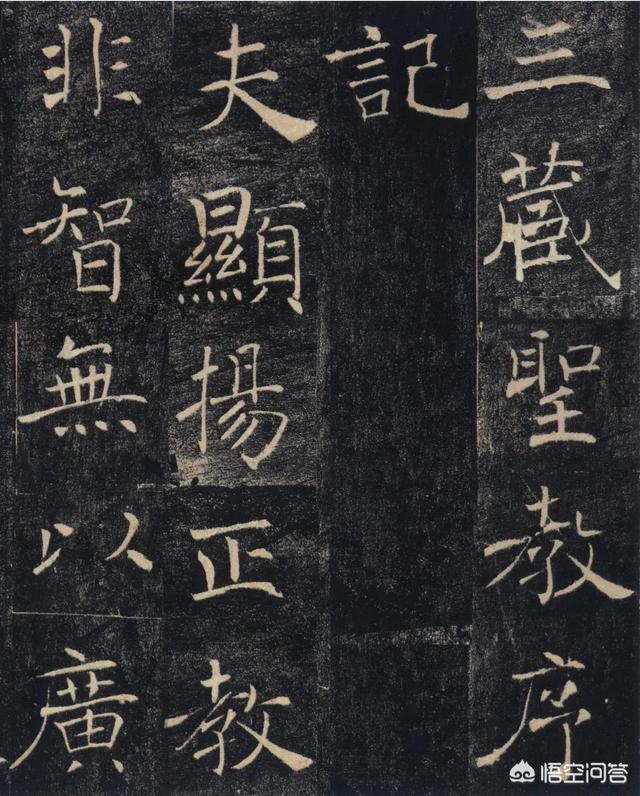 三藏聖教序
記
夫顯揚正教
非智無以廣
悟空问答